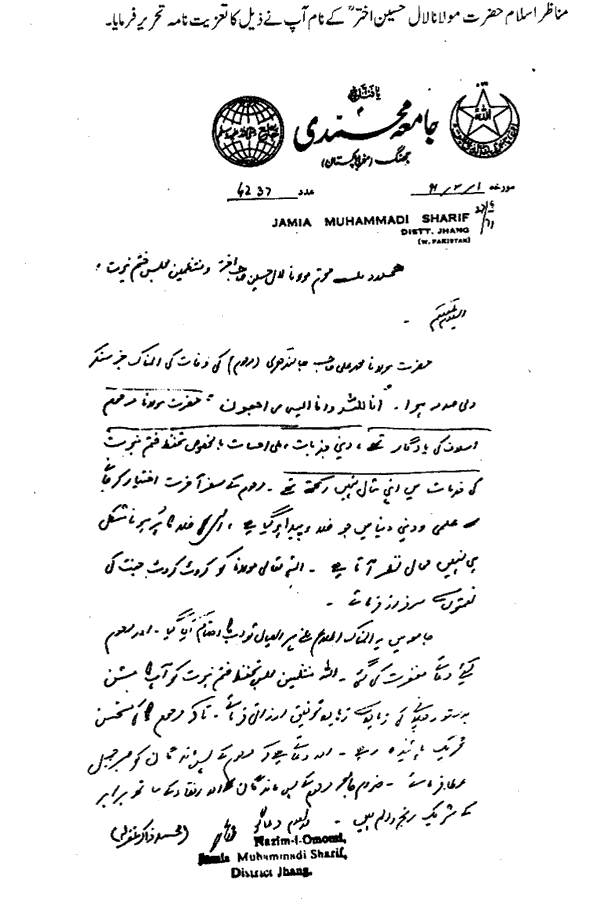 مناظر اسلام حضرت مولانا لال حسین اخترؒ کے نام آپ نے ذیل کا تعزیت نامہ تحریر فرمایا۔
جامعہ محمدی
جھنگ (مغربی پاکستان)
مورخہ ۱/۳/۷۱ عدد 4237
JAMIA MUHAMMADI SHARIF
DISTT. JHANG
(W. PAKISTAN)
محترم مولانا لال حسین صاحب اختر و منتظمین مجلس ختم نبوت
السلام علیکم
حضرت مولانا محمد علی صاحب جالندھری (مرحوم) کی وفات کی المناک خبر سنکر
دلی صدمہ ہوا۔ انا للہ وانا الیہ راجعون حضرت مولانا مرحوم
اسلاف کی یادگار تھے، دینی جذبات، ملی احساسات بالخصوص تحفظ ختم نبوت
کی خدمات میں اپنی مثال نہیں رکھتے تھے۔ مرحوم کے سفر آخرت اختیار کر جانے
سے علمی و دینی دنیا میں جو خلاء پیدا ہو گیا ہے، اس خلاء کا پر ہونا مشکل
ہی نہیں محال نظر آتا ہے۔ اللہ تعالی مولانا کو کروٹ کروٹ جنت کی
نعمتوں سے سرفراز فرمائے۔
جامعہ میں یہ المناک اطلاع ملنے پر ایصال ثواب کا اہتمام کیا گیا۔ اور مرحوم
کیلئے دعائے مغفرت کی گئی۔ اللہ منتظمین مجلس تحفظ ختم نبوت کو آپ کا مشن
بدستور چلانے کی زیادہ سے زیادہ توفیق ارزانی فرمائے۔ تاکہ مرحوم کی مستحسن
تحریک پائندہ رہے۔ اور دعا ہے کہ مرحوم کے پس ماندگان کو صبر جمیل
عطا فرمائے۔ مرحوم کے پس ماندگان اور رفقاء کے ساتھ برابر
کے شریک رنج و الم ہیں۔
Nazim-i-Omoomi,
Jamia Muhammadi Sharif,
District Jhang.